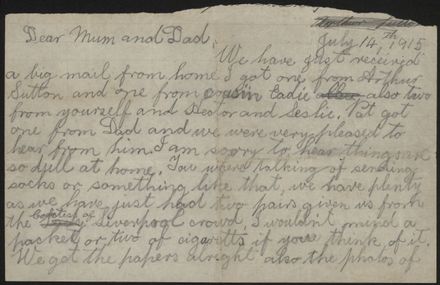 July 14th, 1915
Dear Mum and Dad,
We have just received
a big mail from home I got one from Arthur
Sutton and one from cousin Eadie also two
from yourself and Hector and Leslie. Nat got
one from Dad and we were very pleased to
hear from him. I am sorry to hear things are
so dull at home. You were talking of sending
socks or something like that, we have plenty
as we have just had two pairs given us from
the Liverpool crowd, I wouldn't mind a
packet or two of cigaretts if you think of it.
We got the papers alright also the photos of